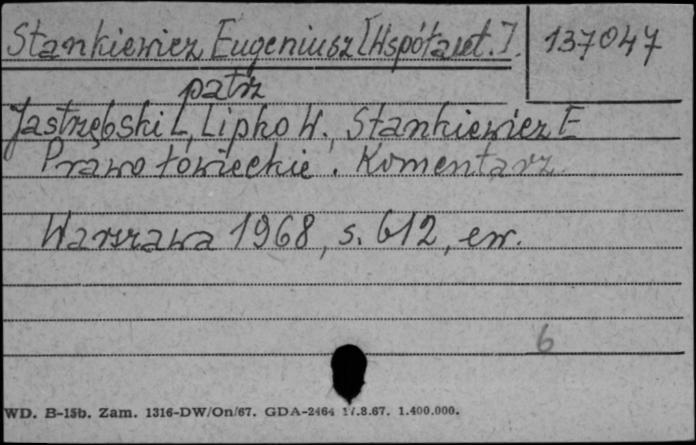 Stankiewicz Eugeniusz [Współaut.]. 137047
patrz
Jastrzębski L, Lipko W., Stankiewicz E
Prawo łowieckie. Komentarz
Warszawa 1968, s. 612, err.
6
WD. B-15b. Zam. 1316-DW/On/67. GDA-2464 17.8.67. 1.400.000.